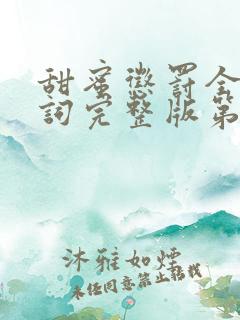 甜蜜懲罰全
詞完整版第
沐雅如煙
未经同意禁止转载